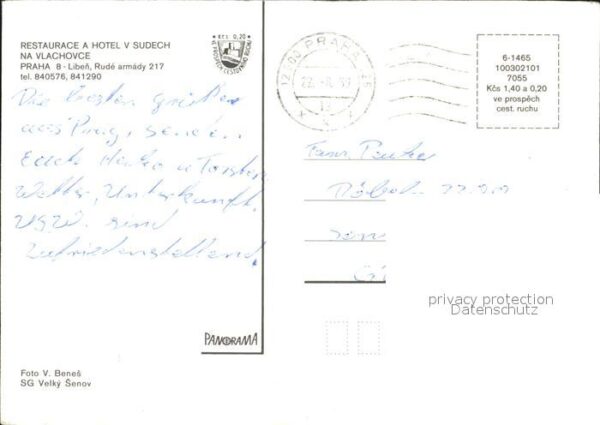 RESTAURACE A HOTEL V SUDECH
NA VLACHOVCE
PRAHA 8 - Libeň, Rudé armády 217
tel. 840576, 841290
Kčs 0,20
VE PROSPĚCH CESTOVNÍHO RUCHU
Die besten Grüße
aus Prag, senden
Euch Heiko u Torsten
Wetter, Unterkunft,
usw. sind
zufriedenstellend.
PRAHA
6-1465
100302101
7055
Kčs 1,40 a 0,20
ve prospěch
cest. ruchu
Fam.
privacy protection
Datenschutz
PANORAMA
Foto V. Beneš
SG Velký Šenov